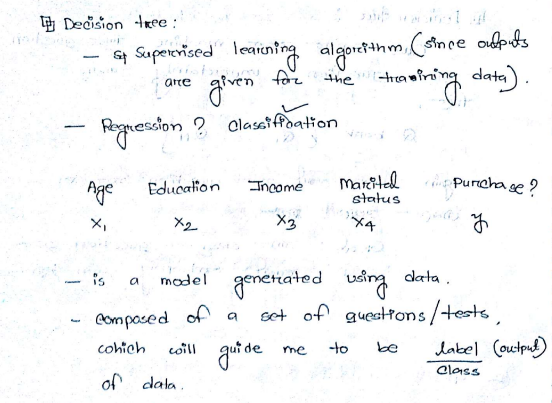 Decision tree:
- Supervised learning algorithm (since outputs
are given for the training data).
- Regression? Classification ✓
Age Education Income Marital status Purchase?
X₁ X₂ X₃ X₄ y
- is a model generated using data.
- composed of a set of questions/tests,
which will guide me to be label (output)
class
of data.